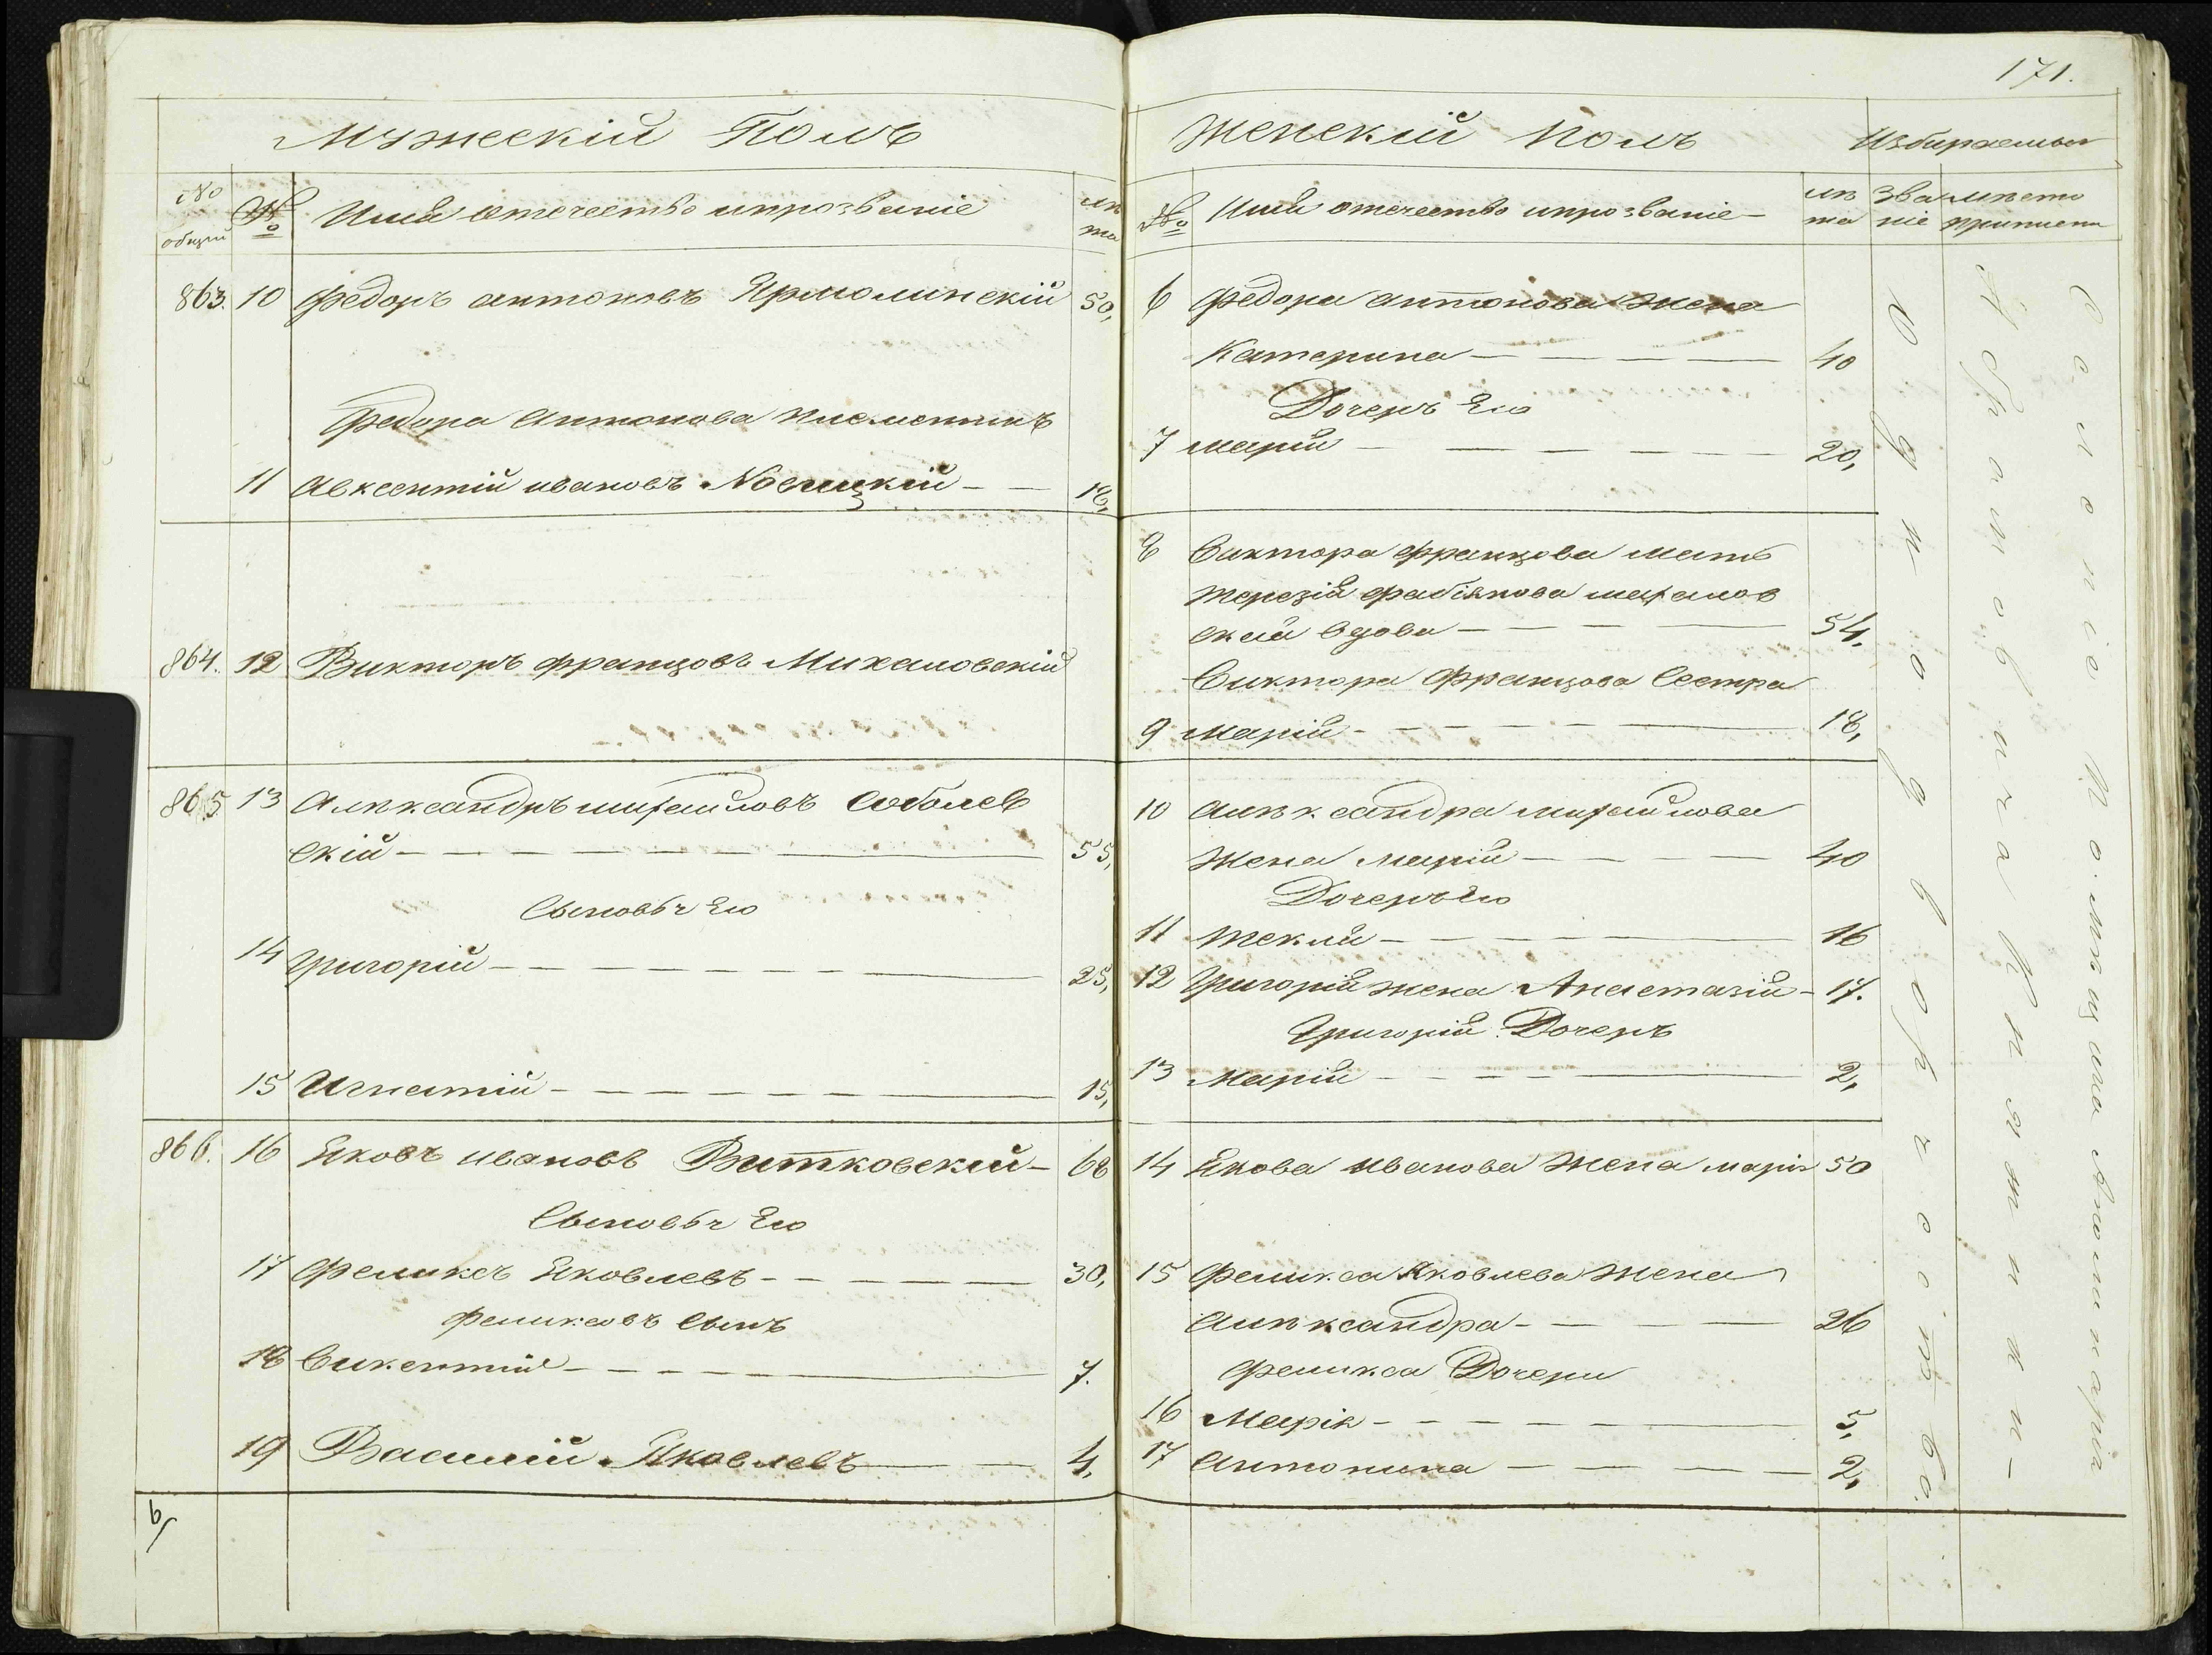 171.
Мужескій Полъ
№ общій
№
Имя отечество ипрозваніе
лѣ та
863. 10 Федоръ антоновъ Ярмолинскій 50,
Федора Антонова племенникъ
11 Авксентій ивановъ Новицкій — — 18,
864. 12 Викторъ францовъ Михаловскій
865 13 Алѣксандръ михайловъ Соболев
скій — 55,
Сыновья Его
14 Григорій — 25,
15 Игнатій — 15,
866. 16 Яковъ ивановъ Витковскій — 68
Сыновья Его
17 Феликсъ Яковлевъ — 30,
Феликсовъ Сынъ
18 Викентій — 7.
19 Василій Яковлевъ — 4,
Женскій полъ
№
Имя отечество ипрозваніе —
лѣ та
Избираемые
зва ніе
мѣсто приписки
6 Федора антонова жена
Катерина — 40
Дочерь Его
7 марія — 20,
8 Виктора францова мать
терезія фабіянова михалов
ская вдова — 54,
Виктора Францова Сестра
9 Марія — 18,
10 Алѣксандра михайлова
жена Марія — 40
Дочерь Его
11 текля — 16
12 Григорія жена Анастазія — 17.
Григорія Дочерь
13 Марія — 2,
14 Якова иванова жена марія 50
15 Феликса Яковлева жена
Алѣксандра — 26
Феликса Дочери
16 Марія — 5,
17 Антонина — 2,
Однодворчество.
Селеніе Помѣщика